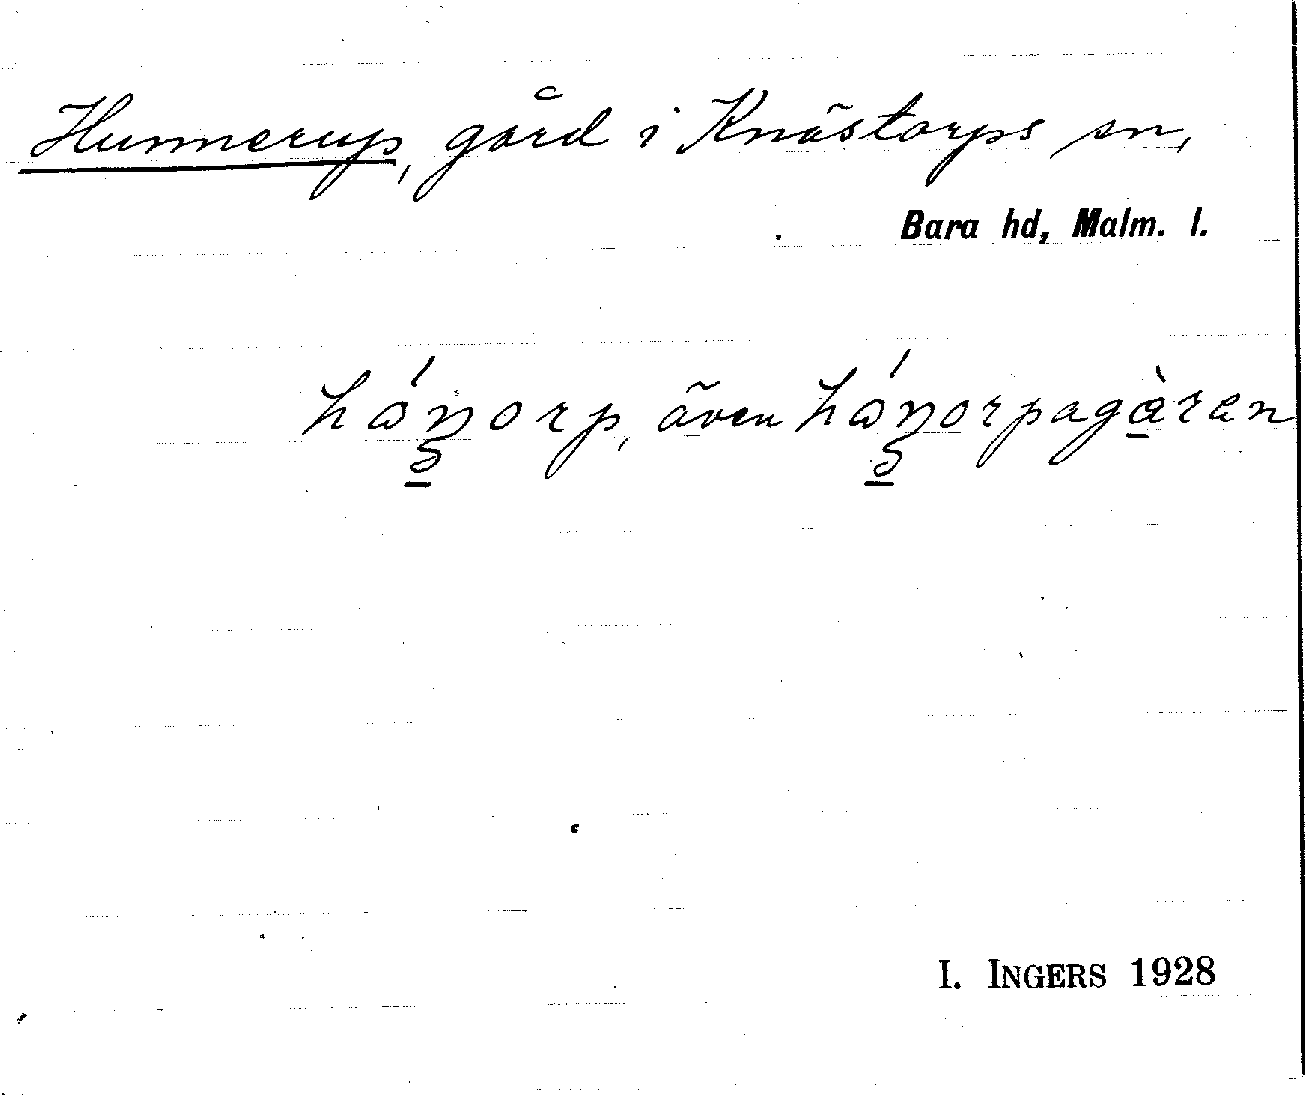 Hunnerup, gård i Knästorps sn,
Bara hd, Malm. l.
hánorp, även hánorpagàren
I. INGERS 1928